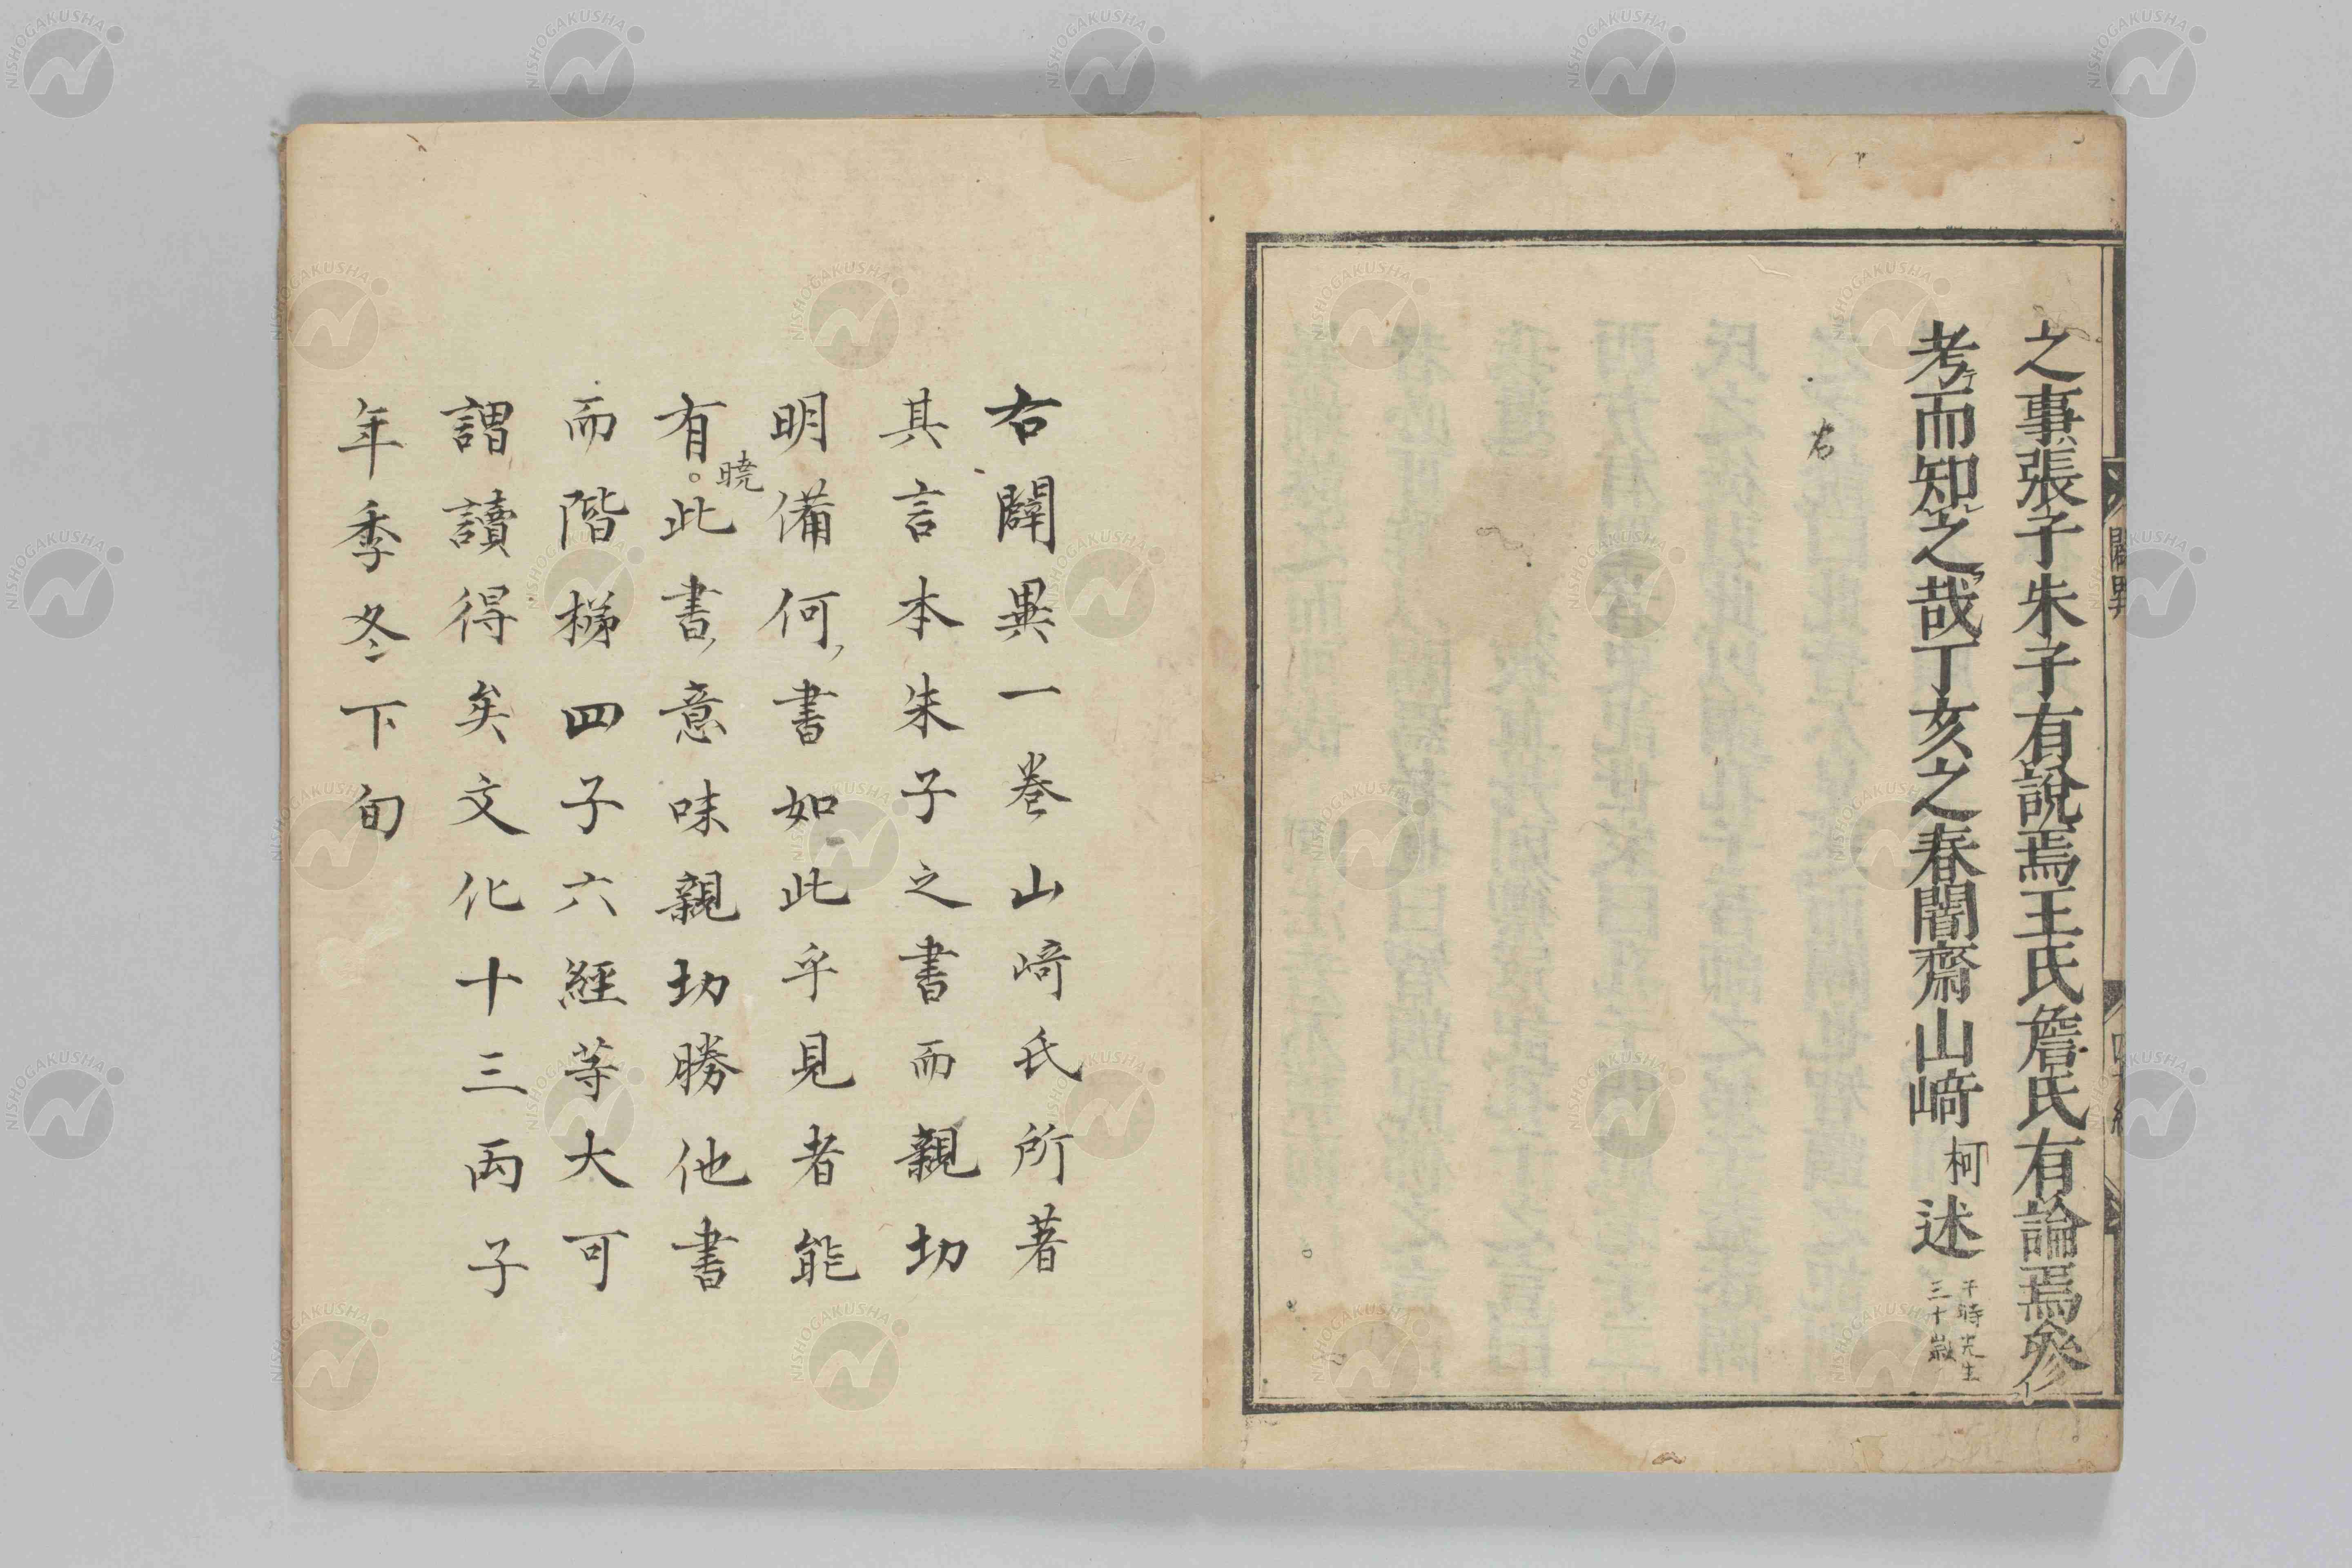 之事張子朱子有說焉王氏詹氏有論焉參
考而知之哉丁亥之春闇齋山﨑柯述
于時先生
三十歲
右
闢異
右闢異一卷山﨑氏所著
其言本朱子之書而親切
明備何書如此乎見者能
有。此書意味親切勝他書
曉
而階梯四子六經等大可
謂讀得矣文化十三丙子
年季冬下旬
NISHOGAKUSHA